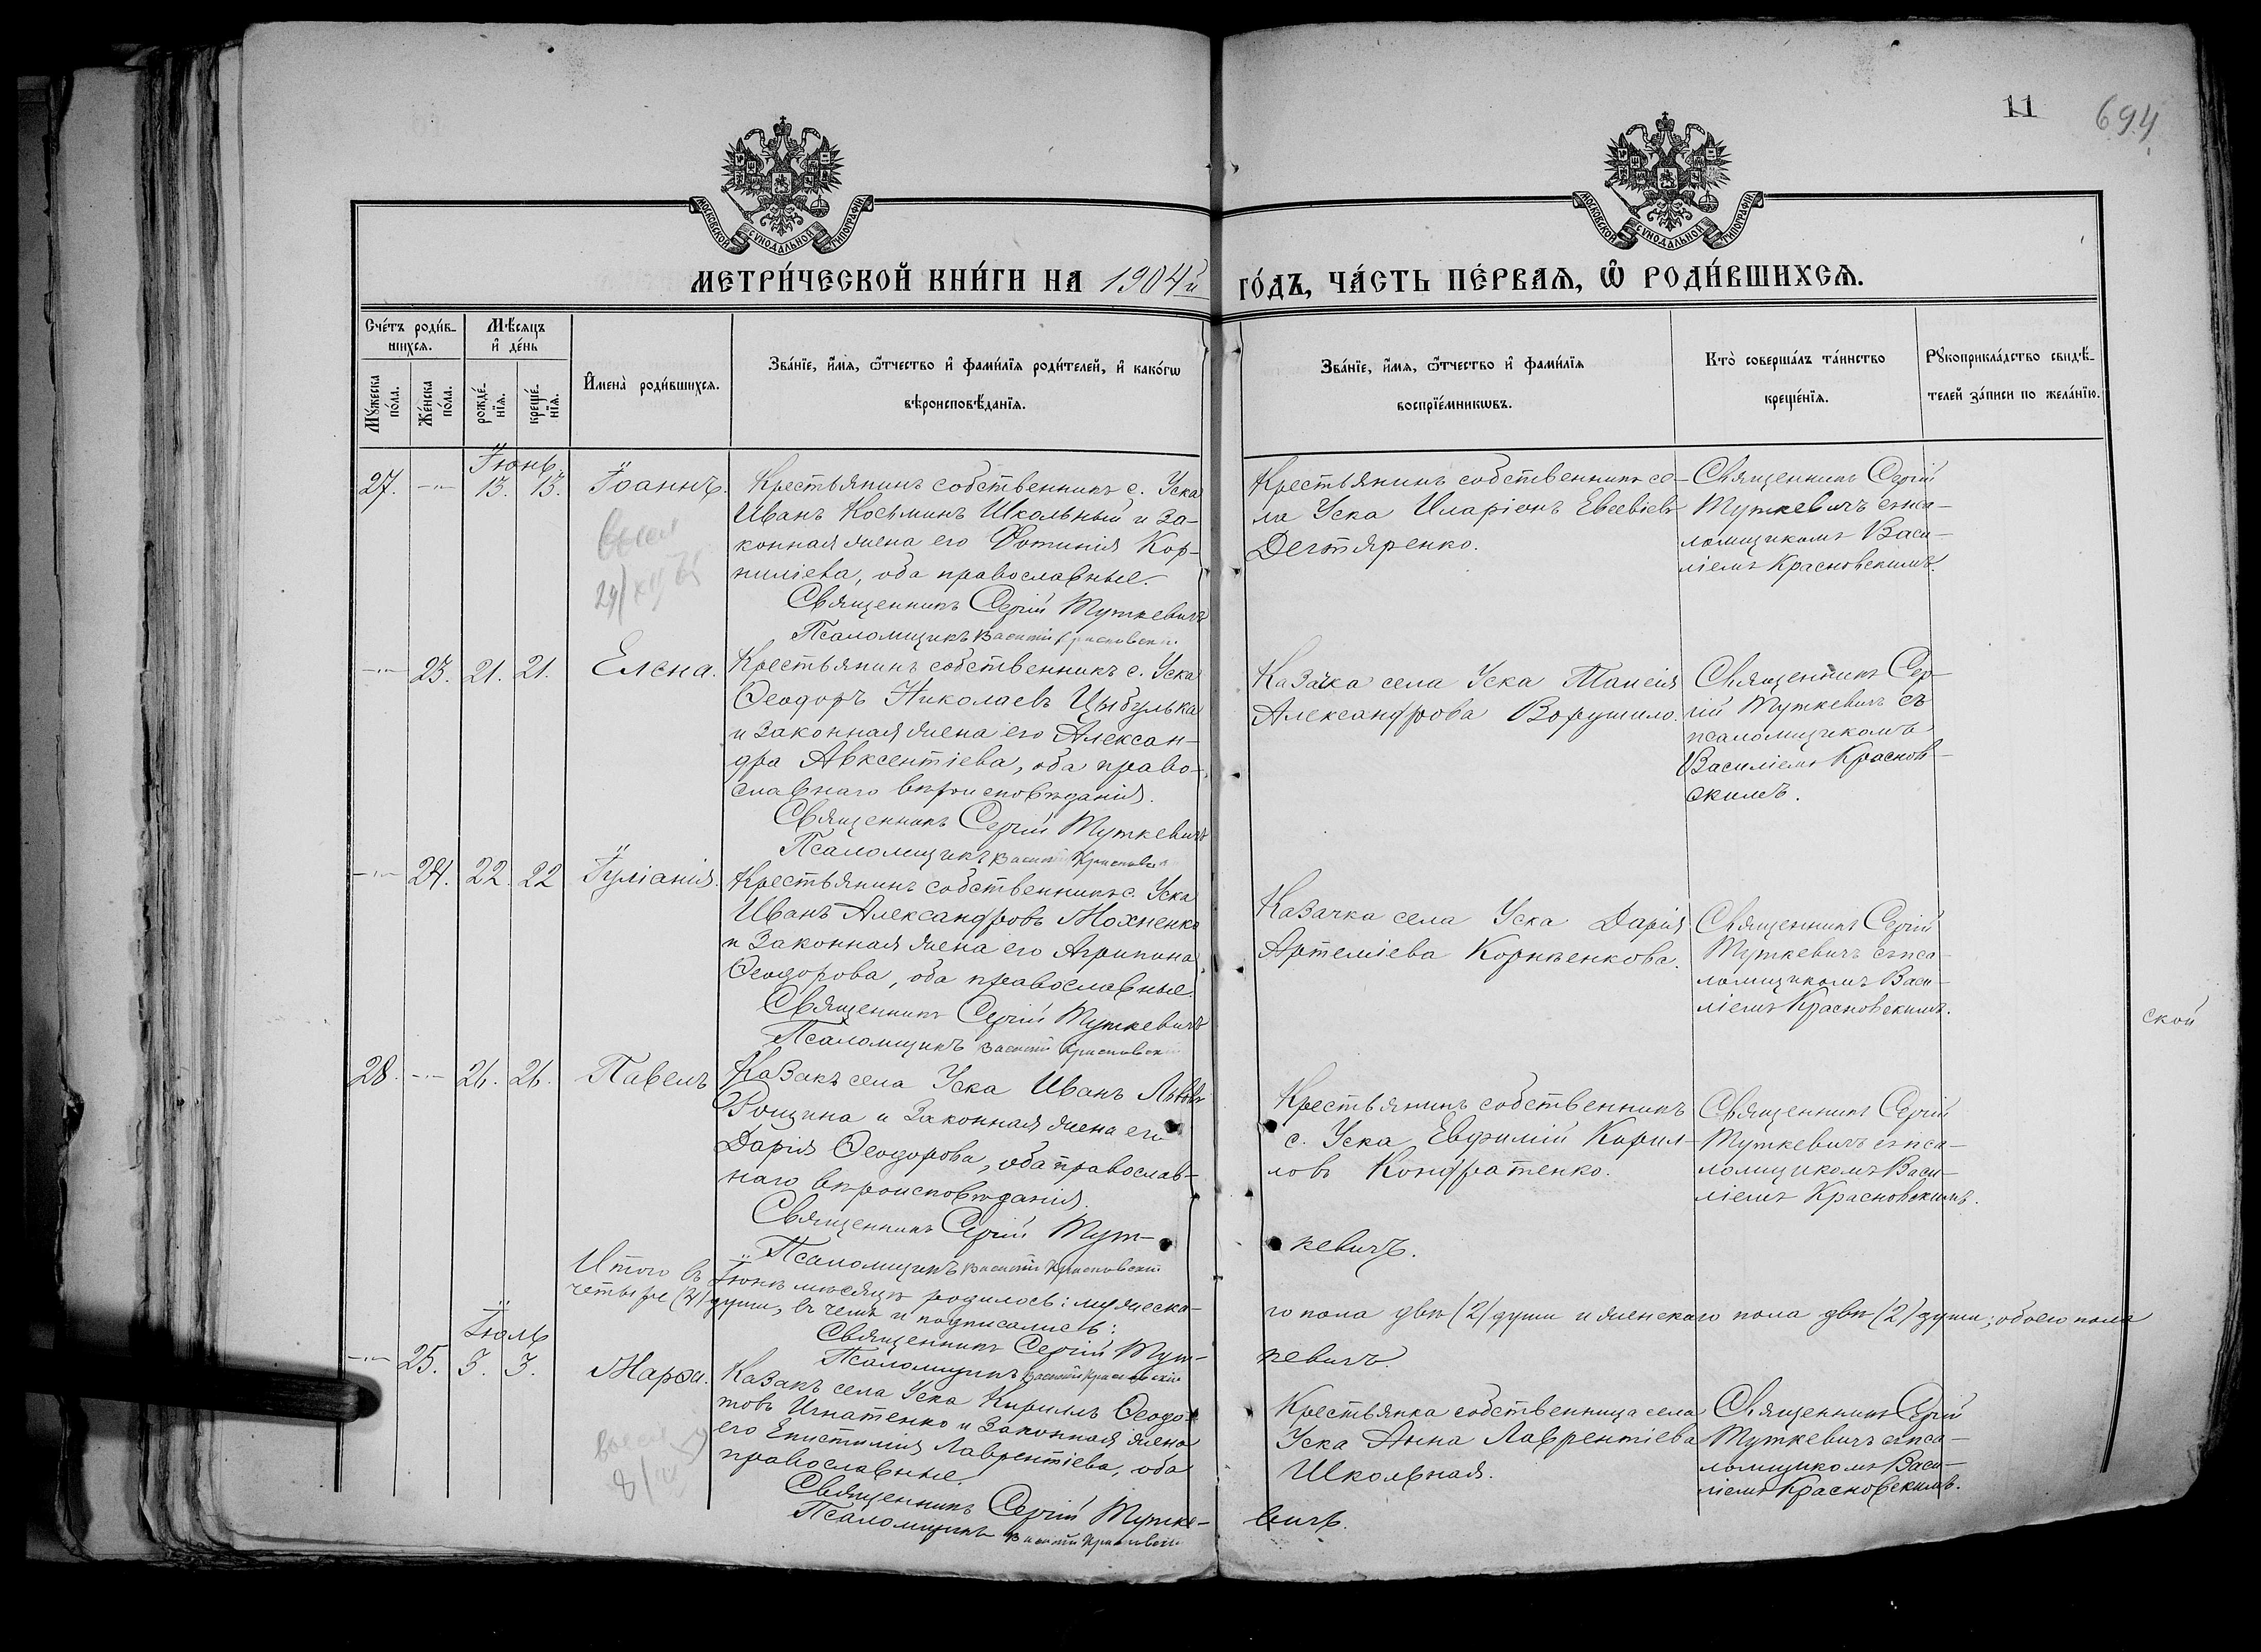 11
694
МОСКОВСКОЙ СѴНОДАЛЬНОЙ ТИПОГРАФІИ
МОСКОВСКОЙ СѴНОДАЛЬНОЙ ТИПОГРАФІИ
МЕТРИ́ЧЕСКОЙ КНИ́ГИ НА 1904й ГО́ДЪ, ЧА́СТЬ ПЕ́РВАЯ, Ѽ РОДИ́ВШИХСЯ.
Сче́тъ роди́в-
шихся.
Мꙋ́жеска по́ла.
Же́нска по́ла.
Мѣ́сяцъ и҆ де́нь
рожде́-нїя.
креще́-нїя.
И҆мена̀ роди́вшихся.
Зва́нїе, и҆́мя, ѻ҆́тчество и҆ фами́лїя роди́телей, и҆ како́гѡ
вѣроисповѣ́данїя.
Зва́нїе, и҆́мя, ѻ҆́тчество и҆ фами́лїя
воспрїе́мникѡвъ.
Кто̀ соверша́лъ та́инство
креще́нїя.
Рꙋкоприкла́дство свидѣ́-
телей за́писи по жела́нїю.
Іюнь.
27. -"- 13. 13. Іоаннъ.
Крестьянинъ собственникъ с. Уска
Иванъ Косьминъ Школьный и за-
конная жена его Фотинія Кор-
ниліева, оба православные.
Священникъ Сергій Туткевичъ
Псаломщикъ Василій Красновскій
Крестьянинъ собственникъ се-
ла Уска Иларіонъ Евсевіевъ
Дегтяренко.
Священникъ Сергій
Туткевичъ съ пса-
ломщикомъ Васи-
ліемъ Красновскимъ.
-"- 23. 21. 21. Елена.
Крестьянинъ собственникъ с. Уска
Ѳеодоръ Николаевъ Цыбулька
и законная жена его Алексан-
дра Авксентіева, оба право-
славнаго вѣроисповѣданія.
Священникъ Сергій Туткевичъ
Псаломщикъ Василій Красновскій
Казачка села Уска Таисія
Александрова Ворушило.
Священникъ Сер-
гій Туткевичъ съ
псаломщикомъ
Василіемъ Краснов-
скимъ.
-"- 24. 22. 22 Іуліанія.
Крестьянинъ собственникъ с. Уска
Иванъ Александровъ Мохненко
и законная жена его Агрипина
Ѳеодорова, оба православные.
Священникъ Сергій Туткевичъ
Псаломщикъ Василій Красновскій
Казачка села Уска Дарія
Артеміева Корнѣенкова.
Священникъ Сергій
Туткевичъ съ пса-
ломщикомъ Васи-
ліемъ Красновскимъ.
28. -"- 26. 26. Павелъ
Казакъ села Уска Иванъ Львовъ
Рощина и законная жена его
Дарія Ѳеодорова, оба православ-
наго вѣроисповѣданія.
Священникъ Сергій Тут-
кевичъ.
Псаломщикъ Василій Красновскій
Крестьянинъ собственникъ
с. Уска Евфимій Кирил-
ловъ Кондратенко.
Священникъ Сергій
Туткевичъ съ пса-
ломщикомъ Васи-
ліемъ Красновскимъ.
ской
Итого въ Іюнѣ мѣсяцѣ родилось: мужеска-
го пола двѣ (2) души и женскаго пола двѣ (2) души; обоего пола
четыре (4) души, въ чемъ и подписались:
Священникъ Сергій Тут-
кевичъ.
Псаломщикъ Василій Красновскій
Іюль
-"- 25. 3. 3. Марѳа.
Казакъ села Уска Кириллъ Ѳеодо-
товъ Игнатенко и законная жена
его Епистимія Лаврентіева, оба
православные.
Священникъ Сергій Тутке-
вичъ.
Псаломщикъ Василій Красновскій
Крестьянка собственница села
Уска Анна Лаврентіева
Школьная.
Священникъ Сергій
Туткевичъ съ пса-
ломщикомъ Васи-
ліемъ Красновскимъ.